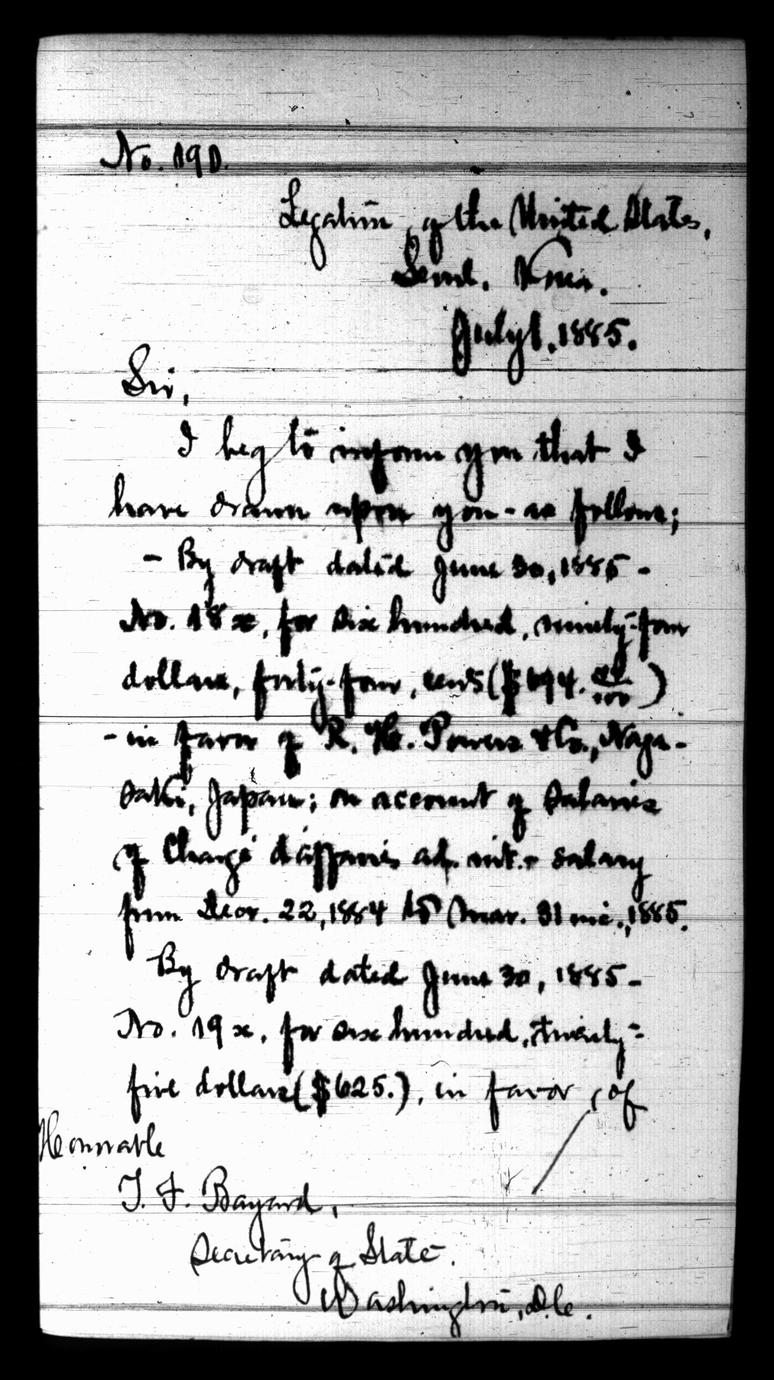 No. 190.
Legation of the United States,
Seoul, Korea.
July 1, 1885.
Sir,
I beg to inform you that I
have drawn upon you - as follows;
- By draft dated June 30, 1885 -
No. 18 x, for six hundred, ninety-four
dollars, forty-four, cents ($694. 44/100)
- in favor of R. H. Powers & Co., Naga-
saki, Japan; on account of Salaries
of Chargé d'affaires ad. int. salary
from Decr. 22, 1884 to Mar. 31 inc., 1885.
By draft dated June 30, 1885 -
No. 19 x, for six hundred, twenty-
five dollars ($625.), in favor, of
Honorable
T. F. Bayard,
Secretary of State.
Washington, D.C.